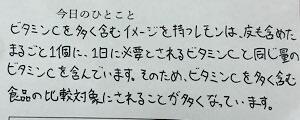 今日のひとこと
ビタミンCを多く含むイメージを持つレモンは、皮も含めた
まるごと1個に、1日に必要とされるビタミンCと同じ量の
ビタミンCを含んでいます。そのため、ビタミンCを多く含む
食品の比較対象にされることが多くなっています。